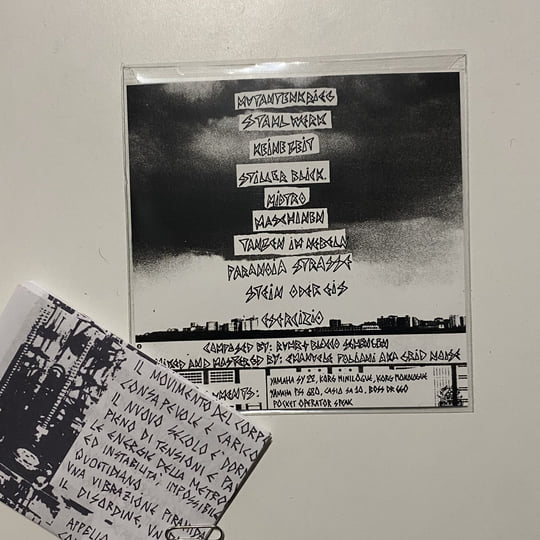 MUTANTENKRIEG
STAHLWERK
KEINE ZEIT
STILLER BLICK.
MIDTRO
MASCHINEN
TANZEN IM NEBELN
PARANOIA STRASSE
STEIN ODER EIS
ESERCIZIO
COMPOSED BY:
AND MASTERED BY: EMANUELE AKA GRID NOISE
MENTS:
YAMAHA SY 22, KORG MINILOGUE, KORG MONOLOGUE
YAMAHA PSS CASIO SA 10, BOSS DR 660
POCKET OPERATOR SPEAK
IL MOVIMENTO DEL CORP
CONSAPEVOLE E CARICO
IL NUOVO SECOLO E' DOR
PIENO DI TENSIONI E PA
LE ENERGIE DELLA METRO
ED INSTABILITA; IMPOSSIBILE
QUOTIDIANO
UNA VIBRAZIONE PIRAMIDA
IL DISORDINE, UN
APPELLO